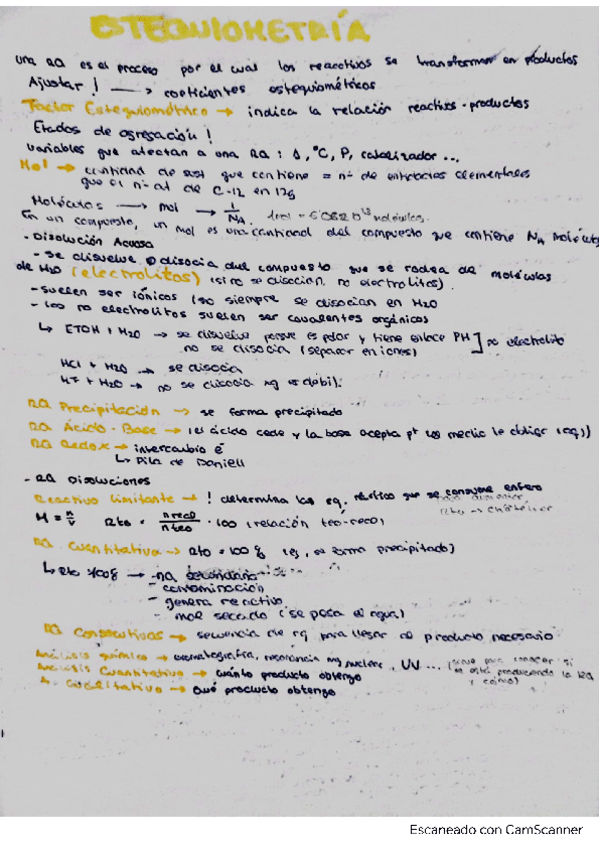 ESTEQUIOMETRÍA
una RQ es el proceso por el cual los reactivos se transforman en productos
Ajustar! → coeficientes estequiométricos
Factor Estequiométrico → indica la relación reactivos-productos
Estados de agregación!
Variables que afectan a una RQ: Δ, °C, P, catalizador ...
Mol → cantidad de sust que contiene = nº de entidades elementales
que el nº at de C-12 en 12g
Moléculas → mol → 1/NA. 1mol =
En un compuesto, un mol es una cantidad del compuesto que contiene NA moléculas
- Disolución Acuosa
- se disuelve o disocia del compuesto que se rodea de moléculas
de H2O (electrolitos) (si no se disocian, no electrolitos).
- suelen ser iónicos (no siempre se disocian en H2O
- los no electrolitos suelen ser covalentes orgánicos
↳ ETOH + H2O → se disuelve porque es polar y tiene enlace PH ] no electrolito
no se disocia (separar en iones)
HCl + H2O → se disocia
HF + H2O → no se disocia mq es débil.
RQ Precipitación → se forma precipitado
RQ Ácido-Base → (el ácido cede y la base acepta p+
RQ Redox → intercambio é
↳ Pila de Daniell
- RQ Disoluciones
Reactivo limitante → ! determina las eq. reactivo que se consume entero
M = n/v Rto = n reco/n teo · 100 (relación teo-reco)
RQ Cuantitativa → Rto = 100 % (ej, se forma precipitado)
↳ Rto
- contaminación
- genera reactivo
- mal secado (se pesa el agua)
RQ Consecutivas → secuencia de rq para llegar al producto necesario
Análisis químico → cromatografía, resonancia mg nuclear, UV ... (sirve para conocer si
se está produciendo la RQ
y cómo)
Análisis Cuantitativo → cuánto producto obtengo
A. Cualitativo → Qué producto obtengo
Escaneado con CamScanner